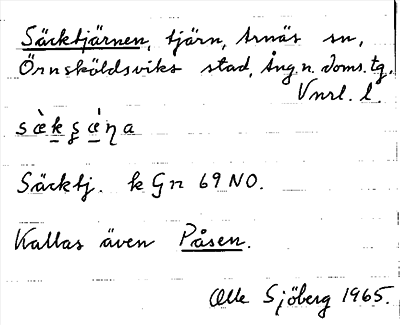 Säcktjärnen, tjärn, Arnäs sn,
Örnsköldsviks stad, Ång. n. doms. tg,
Vnrl. l.
Säcktj. k Gn 69 NO.
Kallas även Påsen.
Olle Sjöberg 1965.